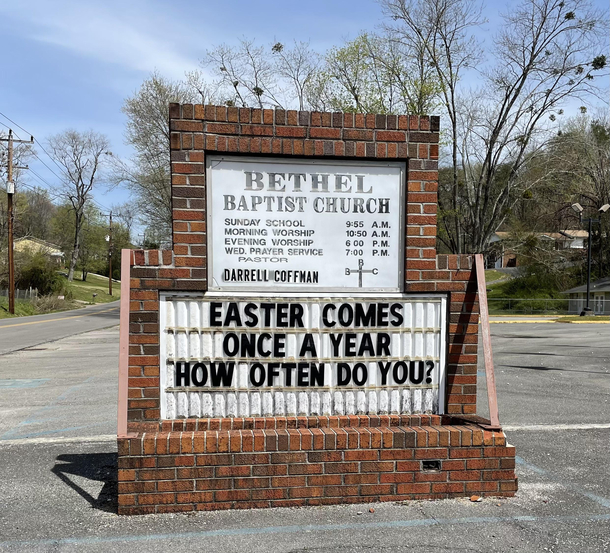 BETHEL
BAPTIST CHURCH
SUNDAY SCHOOL 9:55 A.M.
MORNING WORSHIP 10:50 A.M.
EVENING WORSHIP 6 00 P.M.
WED. PRAYER SERVICE 7:00 P.M.
PASTOR
DARRELL COFFMAN
B
B C
EASTER COMES
ONCE A YEAR
HOW OFTEN DO YOU?